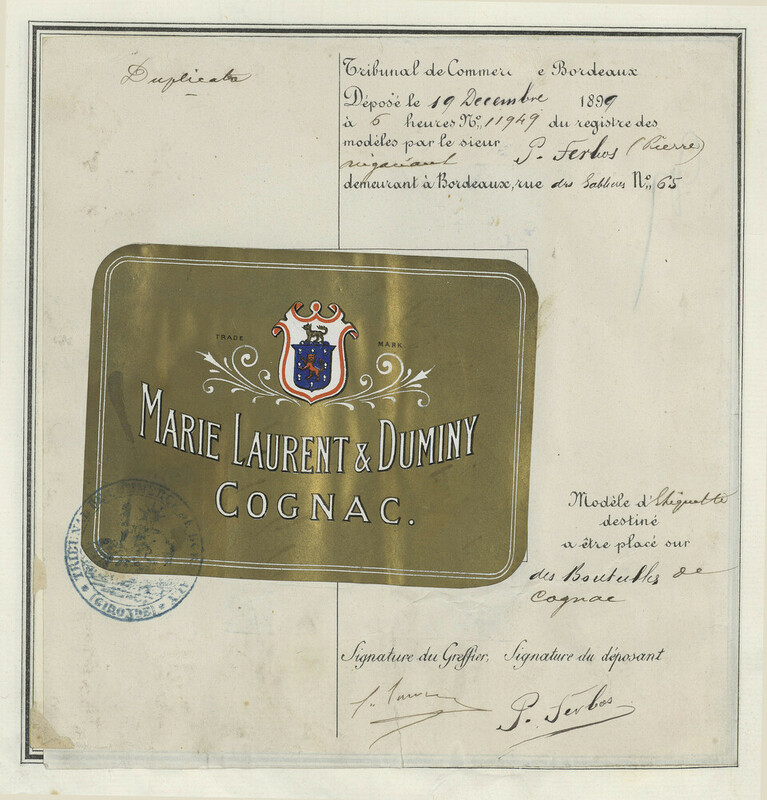 Duplicata
Tribunal de Commerc e Bordeaux
Déposé le 19 Decembre 1899
à 6 heures No. 11949 du registre des
modèles par le sieur P. Ferbos (Pierre)
négociant
demeurant à Bordeaux, rue des Sablières No. 65
TRADE MARK.
MARIE LAURENT & DUMINY
COGNAC.
Modèle d'Etiquette
destiné
a être placé sur
des Bouteilles de
Cognac
(GIRONDE)
Signature du Greffier, Signature du déposant
P. Ferbos